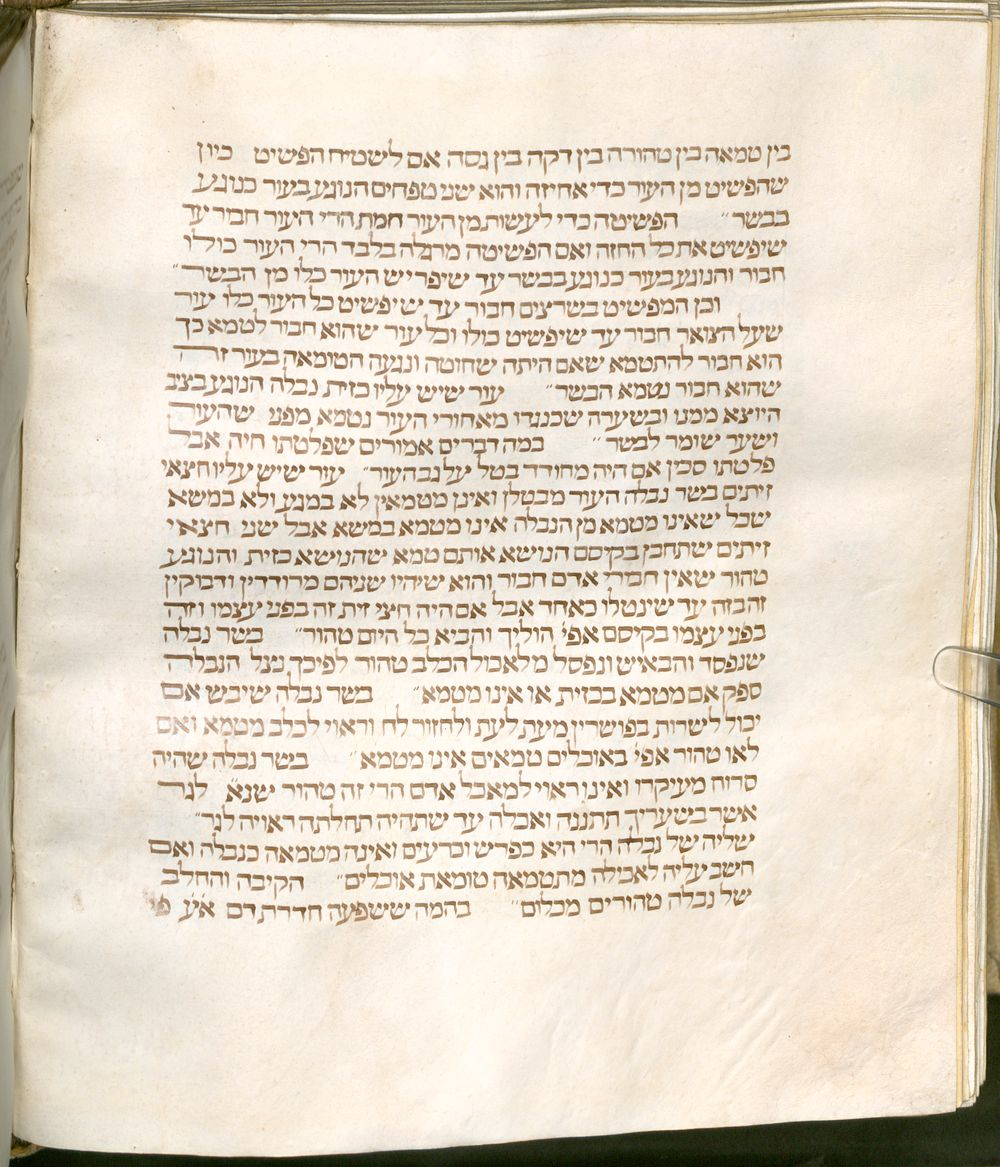 בין טמאה בין טהורה בין דקה בין גסה אם לשטיח הפשיט כיון
שהפשיט מן העור כדי אחיזה והוא שני טפחים הנוגע בעור כנוגע
בבשר״ הפשיטה כדי לעשות מן העור חמת הרי העור חבור עד
שיפשיט את כל החזה ואם הפשיטה מרגלה בלבד הרי העור כולו
חבור והנוגע בעור כנוגע בבשר עד שיפריש העור כלו מן הבשר״
וכן המפשיט בשרצים חבור עד שיפשיט כל העור כלו עור
שעל הצואר חבור עד שיפשיט כולו וכל עור שהוא חבור לטמא כך
הוא חבור להתטמא שאם היתה שחוטה ונגעה הטומאה בעור זה
שהוא חבור נטמא הבשר״ עור שיש עליו כזית נבלה הנוגע בציב
היוצא ממנו ובשערה שכנגדו מאחורי העור נטמא מפני שהעור
ושער שומר לבשר״ במה דברים אמורים שפלטתו חיה אבל
פלטתו סכין אם היה מחודד בטל על גב העור״ עור שיש עליו חצאי
זיתים בשר נבלה העור מבטלן ואינן מטמאין לא במגע ולא במשא
שכל שאינו מטמא מן הנבלה אינו מטמא במשא אבל שני חצאי
זיתים שתחבן בקיסם הנושא אותם טמא שהנושא כזית והנוגע
טהור שאין חבורי אדם חבור והוא שיהיו שניהם מרודדין ודבוקין
זה בזה עד שינטלו כאחד אבל אם היה חצי זית זה בפני עצמו וזה
בפני עצמו בקיסם אפי׳ הוליך והביא כל היום טהור״ בשר נבלה
שנפסד והבאיש ונפסל מלאכול הכלב טהור לפיכך נצל הנבלה
ספק אם מטמא בכזית או אינו מטמא״ בשר נבלה שיבש אם
יכול לשרות בפושרין מעת לעת ולחזור לח וראוי לכלב מטמא ואם
לאו טהור אפי׳ באוכלים טמאים אינו מטמא״ בשר נבלה שהיה
סרוח מעיקרו ואינו ראוי למאכל אדם הרי זה טהור שנא׳ לגר
אשר בשעריך תתננה ואכלה עד שתהיה תחלתה ראויה לגר״
שליה של נבלה הרי היא כפרש וכרעים ואינה מטמאה כנבלה ואם
חשב עליה לאכילה מתטמאה טומאת אוכלים״ הקיבה והחלב
של נבלה טהורים מכלום״ בהמה ששפעה חררת דם א״ע פי